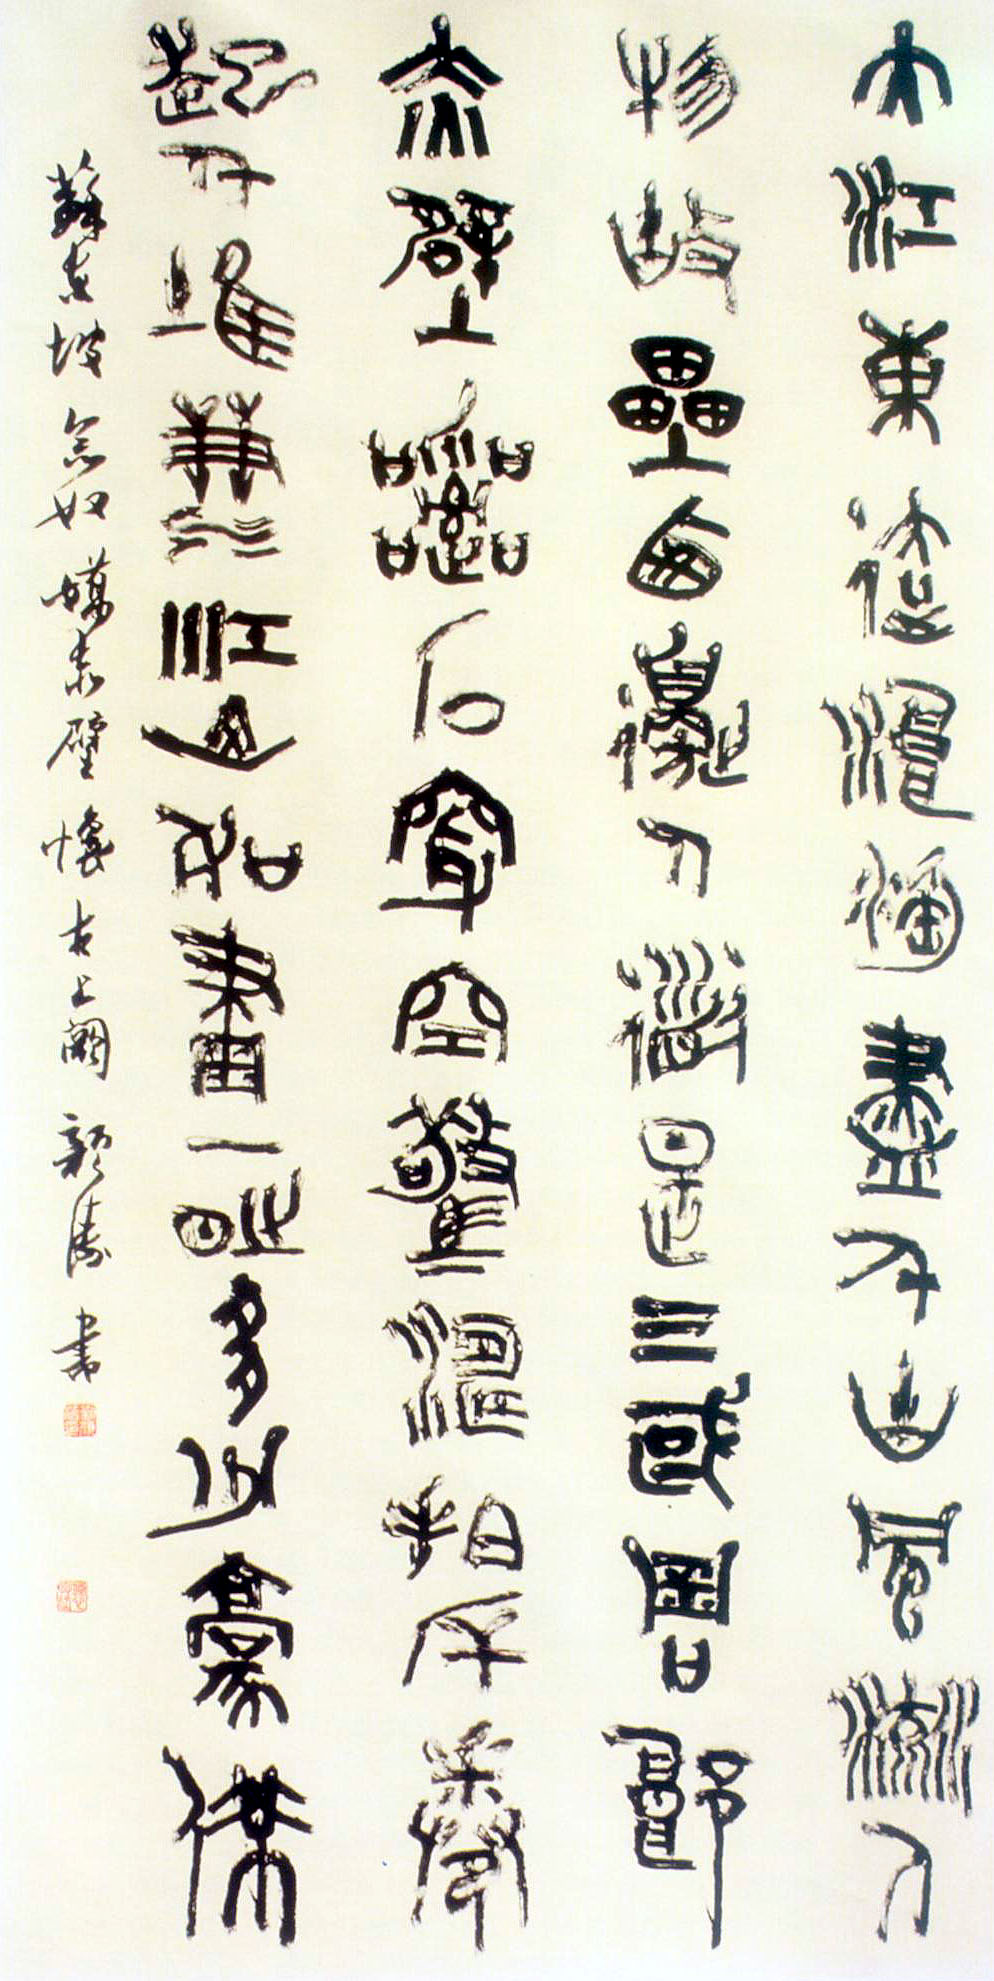 大江東去浪淘盡千古風流人
物故壘西邊人道是三國周郎
赤壁亂石穿空驚濤拍岸卷
起千堆雪江山如畫一時多少豪傑
蘇東坡念奴嬌赤壁懷古上闋 顏濤書